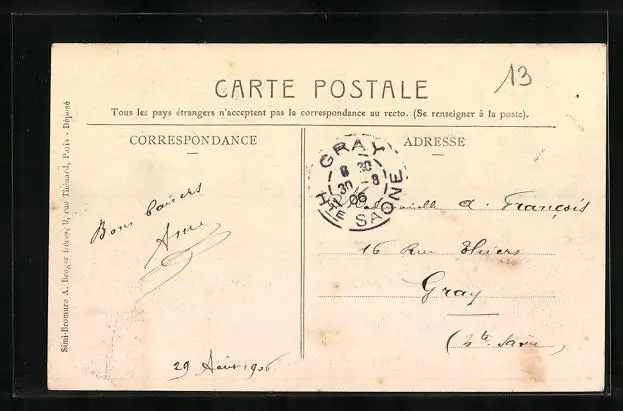 13
CARTE POSTALE
Tous les pays étrangers n'acceptent pas la correspondance au recto. (Se renseigner à la poste).
CORRESPONDANCE
ADRESSE
Simi-Bromure A. Breger frères, 9, rue Thénard, Paris - Déposé
GRAY
6 30
30 -8
06
HTE SAONE
Bons baisers
29 Août 1906
A. François
16 Rue Thiers
Gray
(Hte Saône)